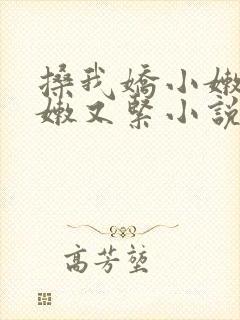 搡我嬌小嫩
嫩又緊小說
高芳堃